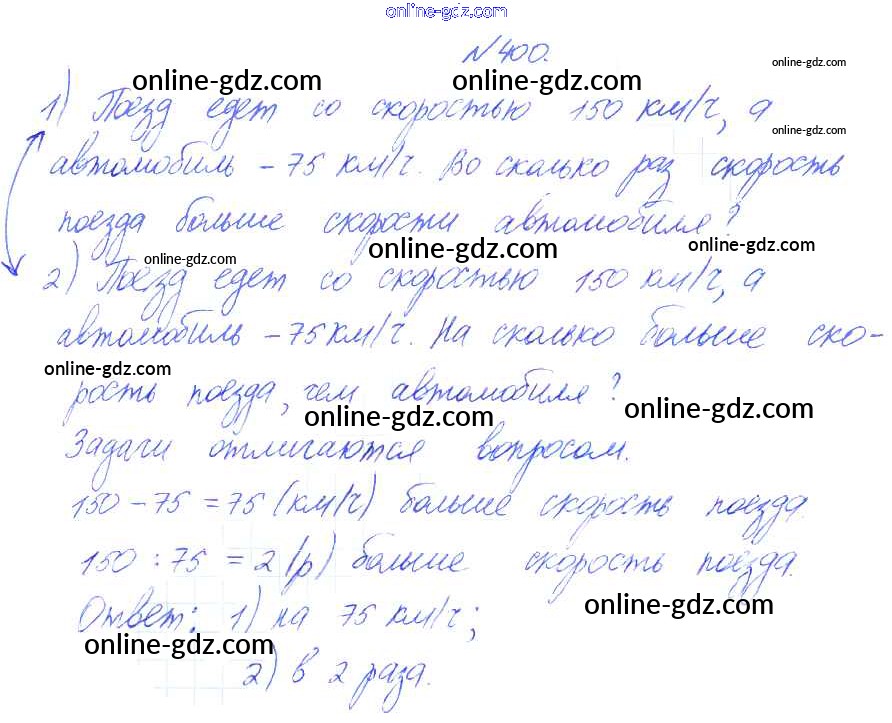 online-gdz.com
№400.
online-gdz.com
online-gdz.com online-gdz.com
1) Поезд едет со скоростью 150 км/ч, а
online-gdz.com
автомобиль – 75 км/ч. Во сколько раз скорость
поезда больше скорости автомобиля?
online-gdz.com online-gdz.com online-gdz.com
2) Поезд едет со скоростью 150 км/ч, а
автомобиль – 75 км/ч. На сколько больше ско-
online-gdz.com
рость поезда, чем автомобиля?
online-gdz.com online-gdz.com
Задачи отличаются вопросом.
150 – 75 = 75 (км/ч) больше скорость поезда.
150 : 75 = 2 (р) больше скорость поезда.
online-gdz.com
Ответ: 1) на 75 км/ч;
online-gdz.com
2) в 2 раза.